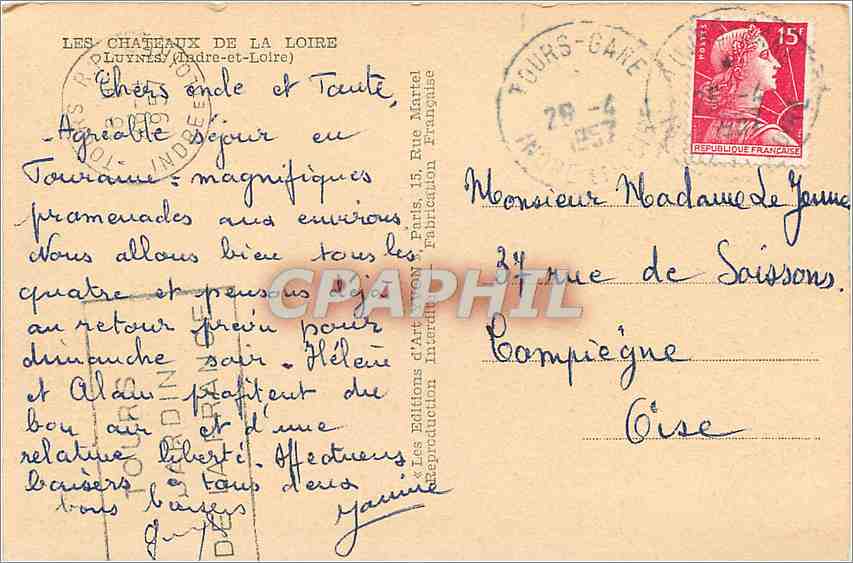 LES CHATEAUX DE LA LOIRE
LUYNES (Indre-et-Loire)
Chers oncle et Tante,
Agréable séjour en
Touraine = magnifiques
promenades aux environs
Nous allons bien tous les
quatre et pensons déjà
au retour prévu pour
dimanche soir. Hélène
et Alain profitent du
bon air et d'une
relative liberté. Affectueux
baisers à tous deux
bons baisers
Janine
Guy
« Les Editions d'Art "YVON", Paris, 15, Rue Martel
Reproduction Interdite Fabrication Française
TOURS-GARE
29 -4
1957
INDRE
TOURS
INDRE
POSTES
15F
REPUBLIQUE FRANÇAISE
Monsieur Madame Le Jeune
37 rue de Soissons.
Compiègne
Oise
TOURS
JARDIN
DE LA FRANCE
CPAPHIL